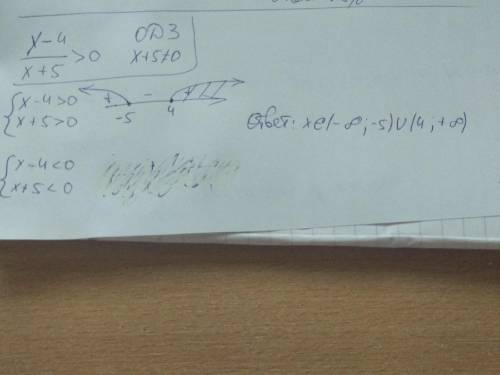 x-4/x+5 >0 ОДЗ x+5≠0
{x-4>0
x+5>0
+ - +
-5 4
Ответ: x∈(-∞;-5)∪(4;+∞)
{x-4<0
x+5<0